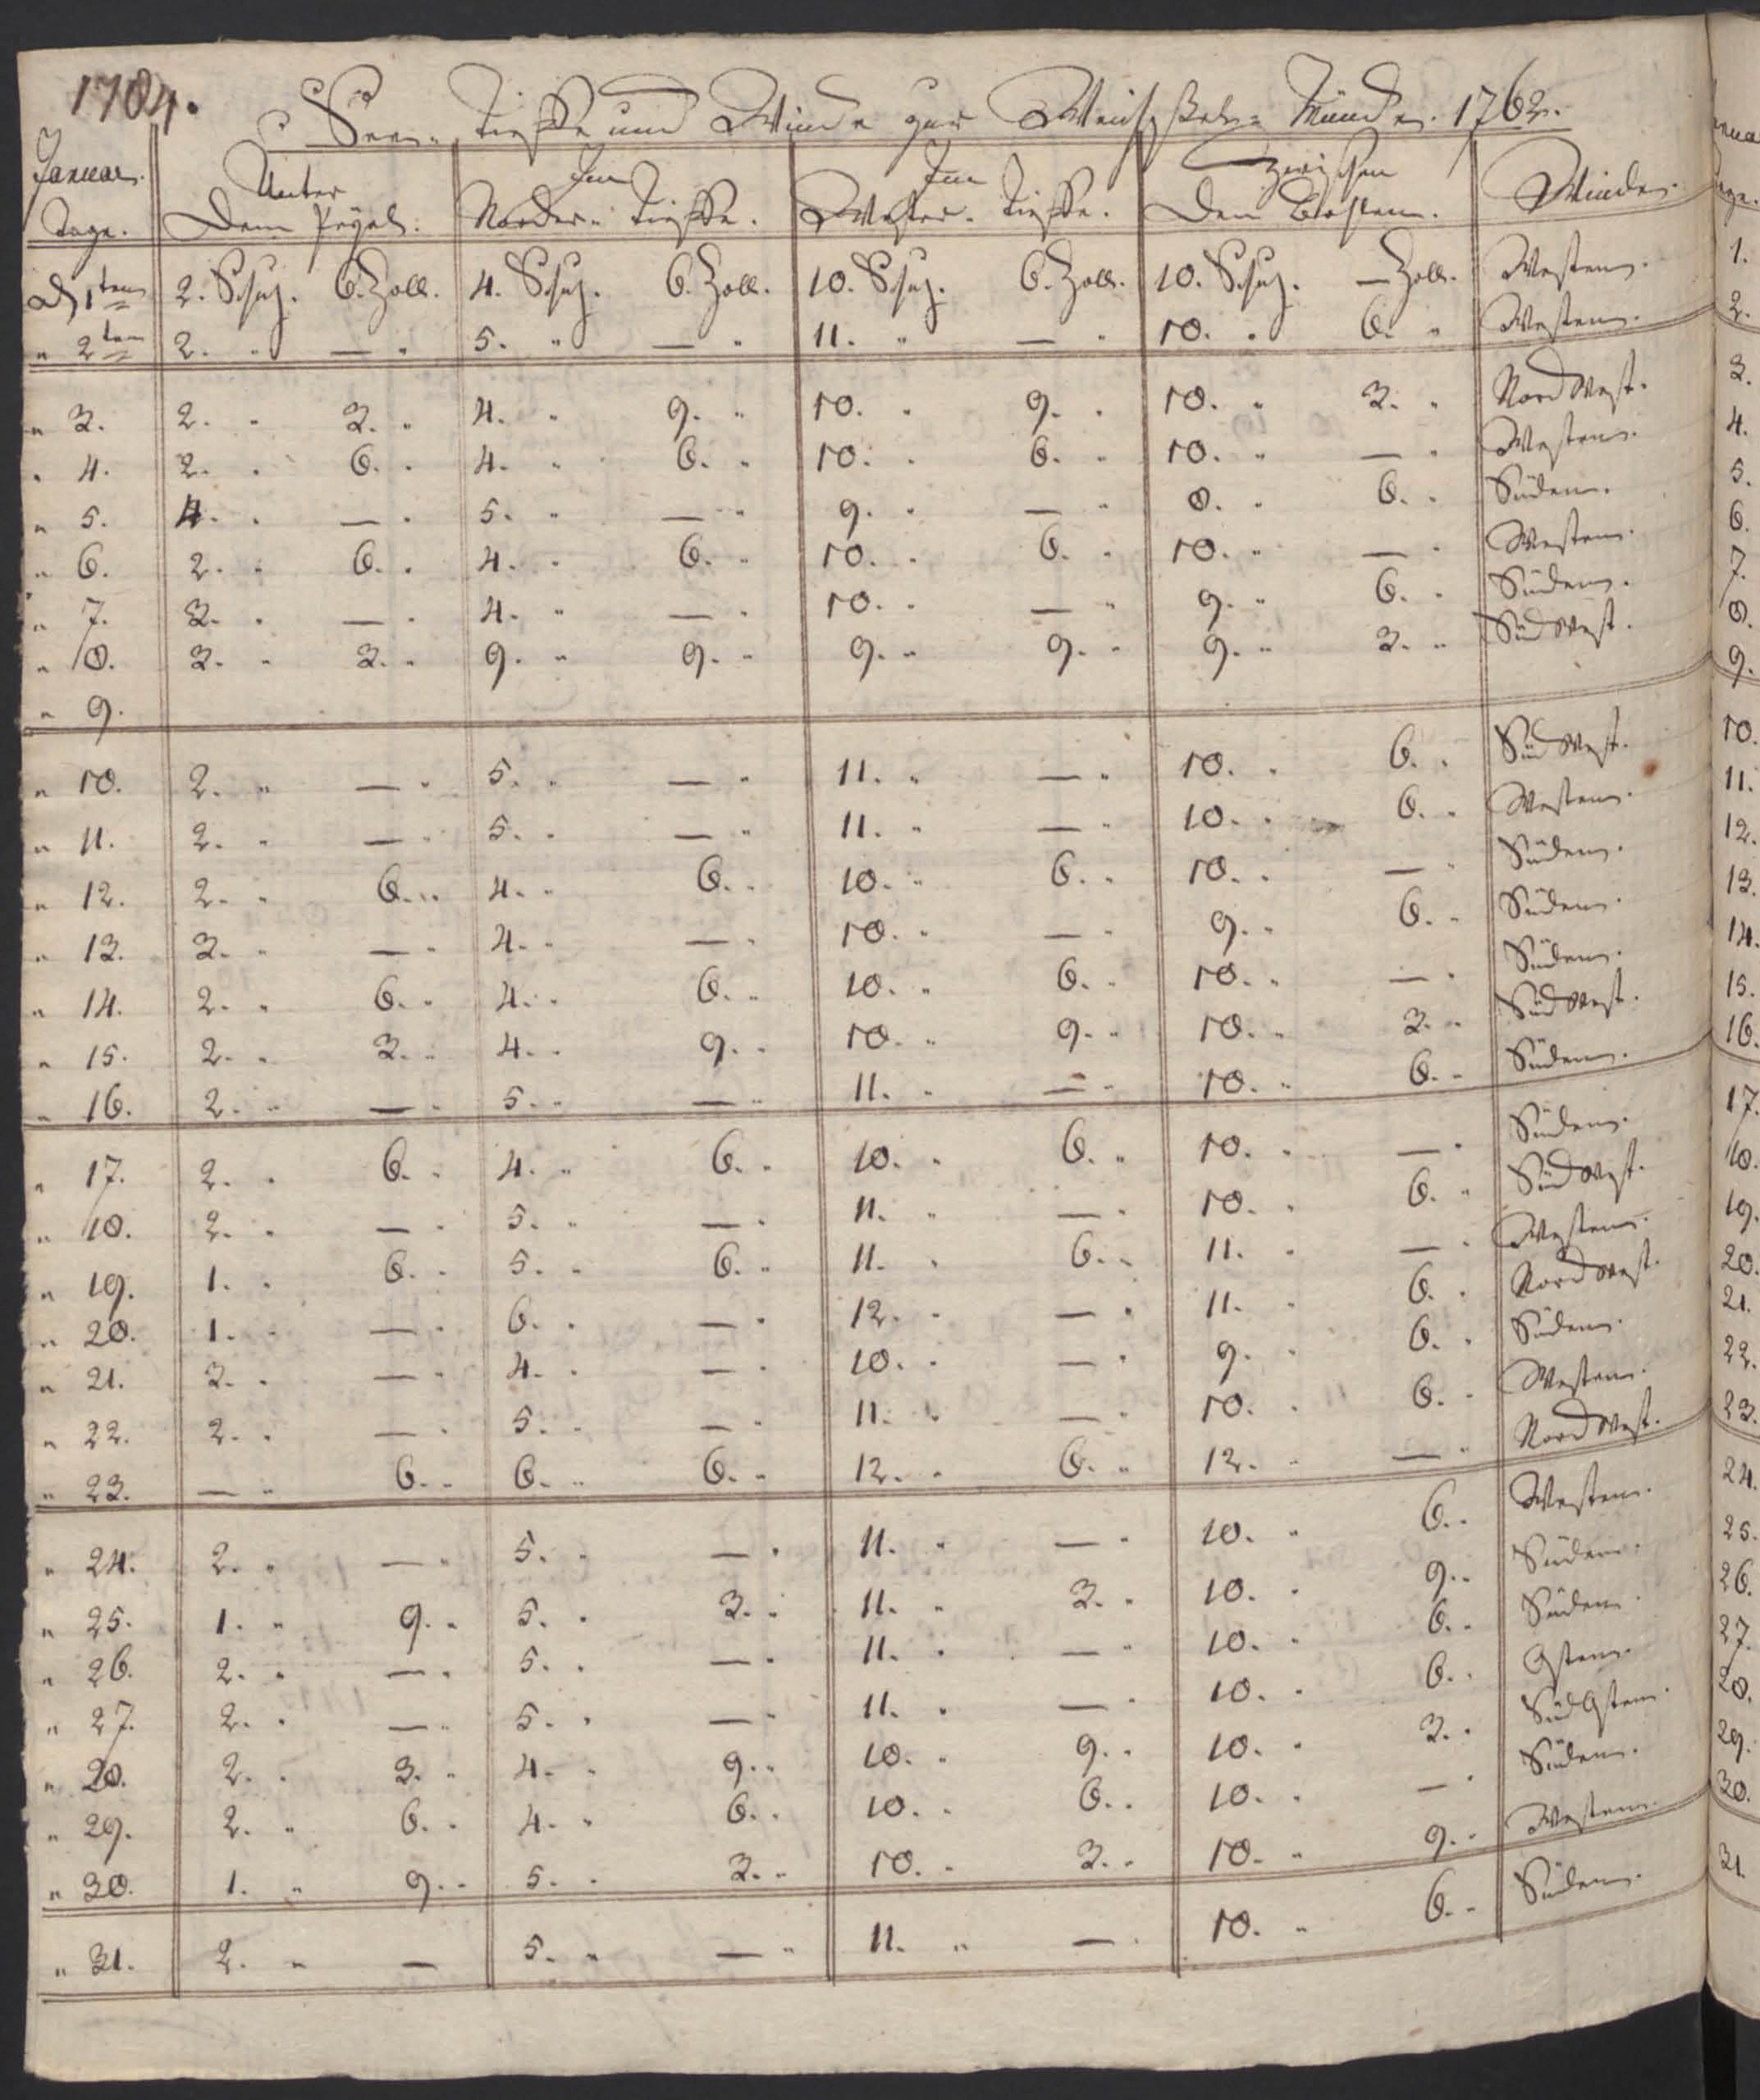 1784.
See- Tieffe und Winde zur Weichsel-Münde. 1762.
Januar. Unter Im Im Zwischen Winde.
Tage. Dem Peyel. Norder- Tieffe. Wester- Tieffe. Den
D 1ten 2. Schuh. 6. Zoll. 4. Schuh. 6. Zoll. 10. Schuh. 6. Zoll. 10. Schuh. — Zoll. Westen.
" 2ten 2. " — " 5. " — " 11. " — " 10. " 6. " Westen.
" 3. 2. " 3. " 4. " 9. " 10. " 9. " 10. " 3. " Nord West.
" 4. 2. " 6. " 4. " 6. " 10. " 6. " 10. " — " Westen.
" 5. 4. " — " 5. " — " 9. " — " 8. " 6. " Süden.
" 6. 2. " 6. " 4. " 6. " 10. " 6. " 10. " — " Westen.
" 7. 3. " — " 4. " — " 10. " — " 9. " 6. " Süden.
" 8. 3. " 3. " 9. " 9. " 9. " 9. " 9. " 3. " Süd West.
" 9.
" 10. 2. " — " 5. " — " 11. " — " 10. " 6. " Süd West.
" 11. 2. " — " 5. " — " 11. " — " 10. " 6. " Westen.
" 12. 2. " 6. " 4. " 6. " 10. " 6. " 10. " — " Süden.
" 13. 3. " — " 4. " — " 10. " — " 9. " 6. " Süden.
" 14. 2. " 6. " 4. " 6. " 10. " 6. " 10. " — " Süden.
" 15. 2. " 3. " 4. " 9. " 10. " 9. " 10. " 3. " Süd West.
" 16. 2. " — " 5. " — " 11. " — " 10. " 6. " Süden.
" 17. 2. " 6. " 4. " 6. " 10. " 6. " 10. " — " Süden.
" 18. 2. " — " 5. " — " 11. " — " 10. " 6. " Süd West.
" 19. 1. " 6. " 5. " 6. " 11. " 6. " 11. " — " Westen.
" 20. 1. " — " 6. " — " 12. " — " 11. " 6. " Nord West.
" 21. 3. " — " 4. " — " 10. " — " 9. " 6. " Süden.
" 22. 2. " — " 5. " — " 11. " — " 10. " 6. " Westen.
" 23. — " 6. " 6. " 6. " 12. " 6. " 12. " — " Nord West.
" 24. 2. " — " 5. " — " 11. " — " 10. " 6. " Westen.
" 25. 1. " 9. " 5. " 3. " 11. " 3. " 10. " 9. " Süden.
" 26. 2. " — " 5. " — " 11. " — " 10. " 6. " Süden.
" 27. 2. " — " 5. " — " 11. " — " 10. " 6. " Osten.
" 28. 2. " 3. " 4. " 9. " 10. " 9. " 10. " 3. " Süd Osten.
" 29. 2. " 6. " 4. " 6. " 10. " 6. " 10. " — " Süden.
" 30. 1. " 9. " 5. " 3. " 10. " 3. " 10. " 9. " Westen.
" 31. 2. " — 5. " — " 11. " — " 10. " 6. " Süden.
1.
2.
3.
4.
5.
6.
7.
8.
9.
10.
11.
12.
13.
14.
15.
16.
17.
18.
19.
20.
21.
22.
23.
24.
25.
26.
27.
28.
29.
30.
31.